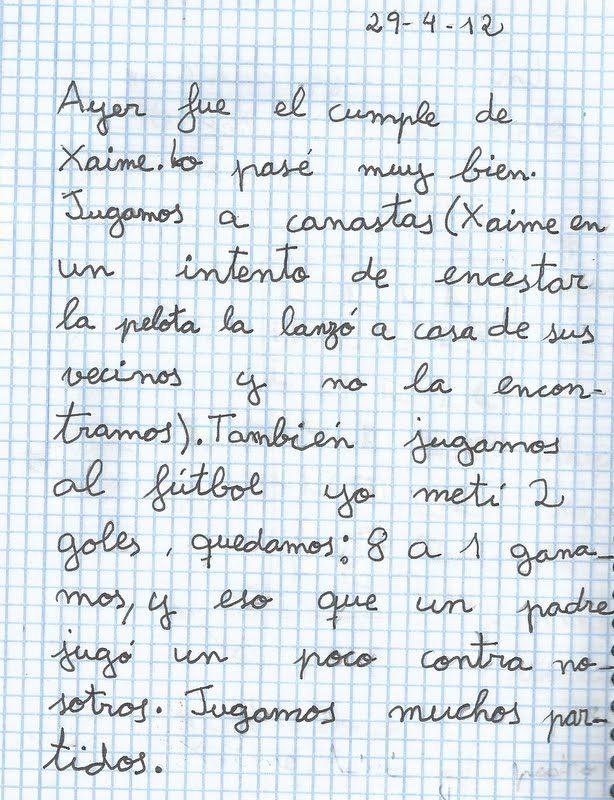 29-4-12
Ayer fue el cumple de
Xaime. Lo pasé muy bien.
Jugamos a canastas (Xaime en
un intento de encestar
la pelota la lanzó a casa de sus
vecinos y no la encon-
tramos). También jugamos
al fútbol yo metí 2
goles, quedamos: 8 a 1 gana-
mos, y eso que un padre
jugó un poco contra no-
sotros. Jugamos muchos par-
tidos.